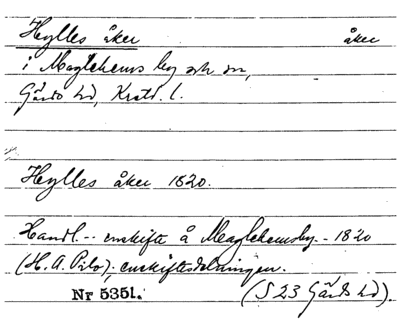 Hylles åker åker
i Maglehems by och sn,
Gärds hd, Krstd. l.
Hylles åker 1820.
Handl. - enskifte å Meaglehemsby. - 1820
(H. A. Pilo); enskiftesdelningen.
Nr 5351. (S 23 Gärds hd).